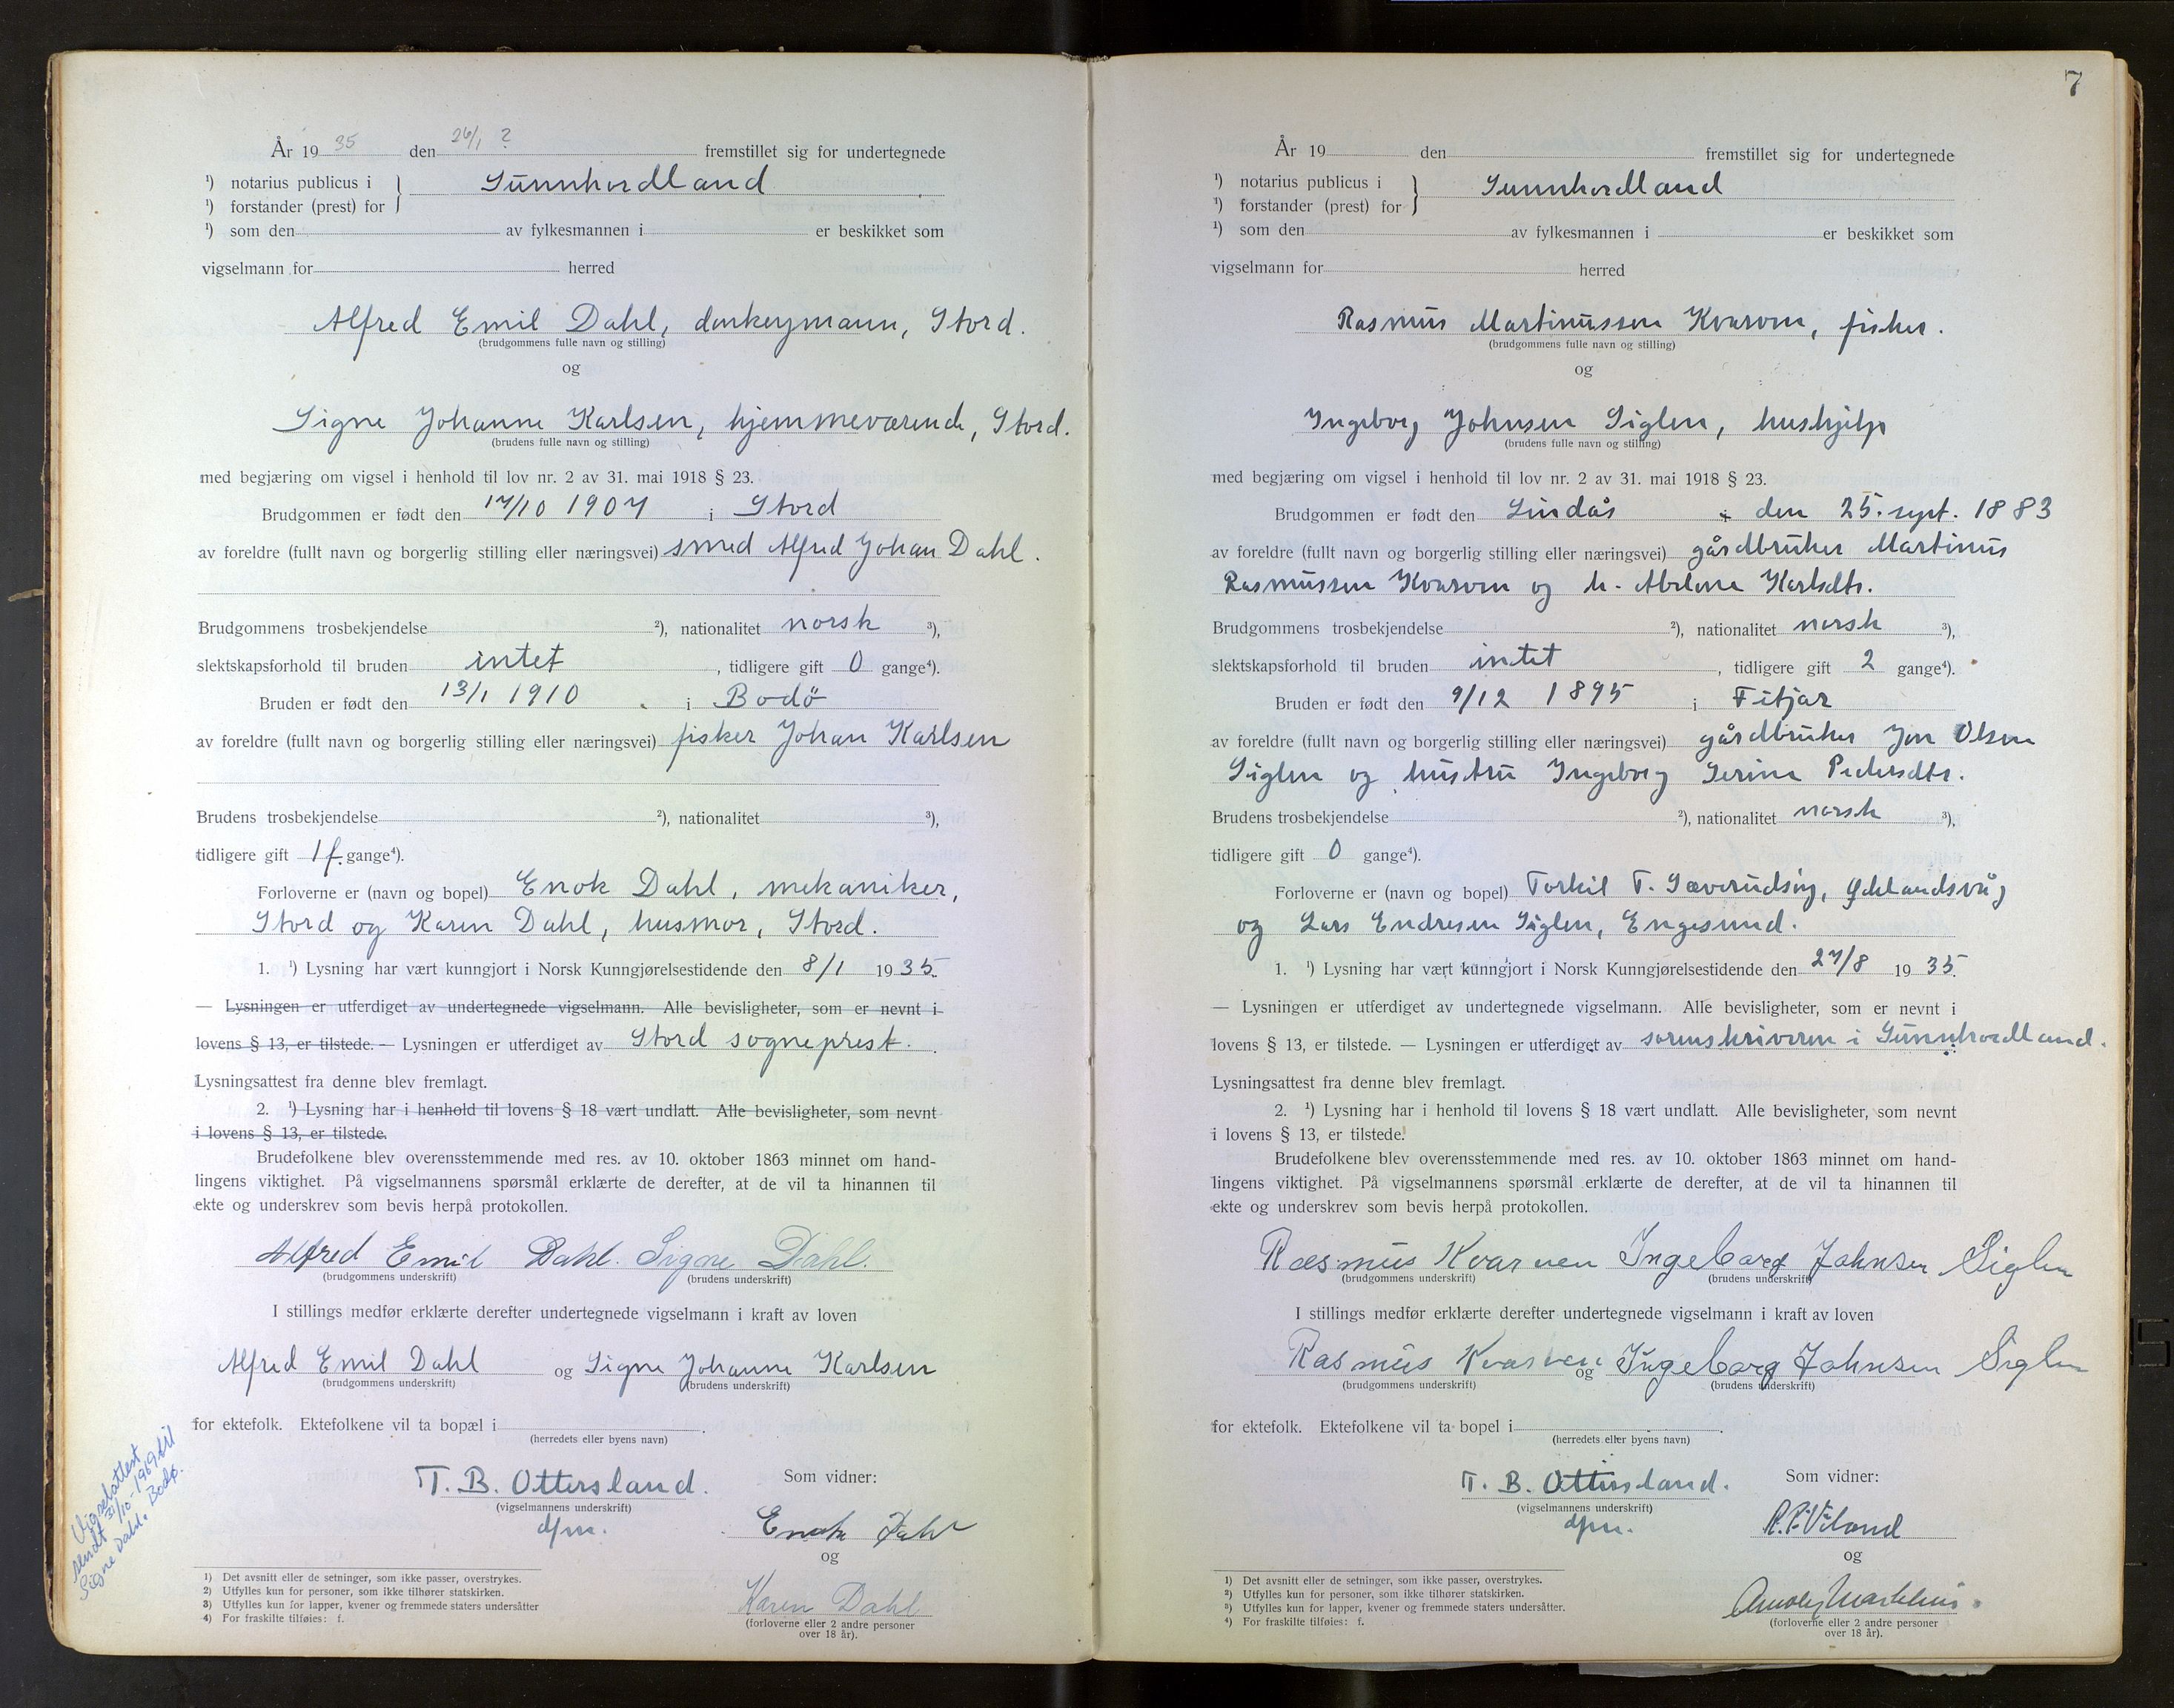 År 19 35 den 26/1 ? fremstillet sig for undertegnede
¹) notarius publicus i } Sunnhordland
¹) forstander (prest) for
¹) som den av fylkesmannen i er beskikket som
vigselmann for herred
Alfred Emil Dahl, donkeymann, Stord.
(brudgommens fulle navn og stilling)
og
Signe Johanne Karlsen, hjemmeværende, Stord.
(brudens fulle navn og stilling)
med begjæring om vigsel i henhold til lov nr. 2 av 31. mai 1918 § 23.
Brudgommen er født den 17/10 1907 i Stord
av foreldre (fullt navn og borgerlig stilling eller næringsvei) smed Alfred Johan Dahl.
Brudgommens trosbekjendelse ²), nationalitet norsk ³),
slektskapsforhold til bruden intet, tidligere gift 0 gange⁴).
Bruden er født den 13/1 1910 i Bodö
av foreldre (fullt navn og borgerlig stilling eller næringsvei) fisker Johan Karlsen
Brudens trosbekjendelse ²), nationalitet ³),
tidligere gift 1 f. gange⁴).
Forloverne er (navn og bopel) Enok Dahl, mekaniker,
Stord og Karen Dahl, husmor, Stord.
1. ¹) Lysning har vært kunngjort i Norsk Kunngjørelsestidende den 8/1 1935.
— Lysningen er utferdiget av undertegnede vigselmann. Alle bevisligheter, som er nevnt i
lovens § 13, er tilstede. — Lysningen er utferdiget av Stord sogneprest.
Lysningsattest fra denne blev fremlagt.
2. ¹) Lysning har i henhold til lovens § 18 vært undlatt. Alle bevisligheter, som nevnt
i lovens § 13, er tilstede.
Brudefolkene blev overensstemmende med res. av 10. oktober 1863 minnet om hand-
lingens viktighet. På vigselmannens spørsmål erklærte de derefter, at de vil ta hinannen til
ekte og underskrev som bevis herpå protokollen.
Alfred Emil Dahl. Signe Dahl.
(brudgommens underskrift) (brudens underskrift)
I stillings medfør erklærte derefter undertegnede vigselmann i kraft av loven
Alfred Emil Dahl og Signe Johanne Karlsen
(brudgommens underskrift) (brudens underskrift)
for ektefolk. Ektefolkene vil ta bopæl i
(herredets eller byens navn)
T. B. Ottersland. Som vidner:
(vigselmannens underskrift)
dfm. Enok Dahl
og
Karen Dahl
(forloverne eller 2 andre personer
over 18 år).
Vigselsattest
sendt 31/10-1969 til
Signe Dahl. Bodø.
1) Det avsnitt eller de setninger, som ikke passer, overstrykes.
2) Utfylles kun for personer, som ikke tilhører statskirken.
3) Utfylles kun for lapper, kvener og fremmede staters undersåtter
4) For fraskilte tilføies: f.
7
År 19 den fremstillet sig for undertegnede
¹) notarius publicus i } Sunnhordland
¹) forstander (prest) for
¹) som den av fylkesmannen i er beskikket som
vigselmann for herred
Rasmus Martinussen Kvarven, fisker.
(brudgommens fulle navn og stilling)
og
Ingeborg Johnsen Siglen, hushjelp
(brudens fulle navn og stilling)
med begjæring om vigsel i henhold til lov nr. 2 av 31. mai 1918 § 23.
Brudgommen er født den Lindås i den 25. sept. 1883
av foreldre (fullt navn og borgerlig stilling eller næringsvei) gårdbruker Martinus
Rasmussen Kvarven og h. Abelone Karlsdtr.
Brudgommens trosbekjendelse ²), nationalitet norsk ³),
slektskapsforhold til bruden intet, tidligere gift 2 gange⁴).
Bruden er født den 9/12 1895 i Fitjar
av foreldre (fullt navn og borgerlig stilling eller næringsvei) gårdbruker Jon Olsen
Siglen og hustru Ingeborg Serina Pedersdtr.
Brudens trosbekjendelse ²), nationalitet norsk ³),
tidligere gift 0 gange⁴).
Forloverne er (navn og bopel) Torkil T. Sæverudsøy, Øklandsvåg
og Lars Endresen Siglen, Engesund.
1. ¹) Lysning har vært kunngjort i Norsk Kunngjørelsestidende den 27/8 1935.
— Lysningen er utferdiget av undertegnede vigselmann. Alle bevisligheter, som er nevnt i
lovens § 13, er tilstede. — Lysningen er utferdiget av sorenskriveren i Sunnhordland.
Lysningsattest fra denne blev fremlagt.
2. ¹) Lysning har i henhold til lovens § 18 vært undlatt. Alle bevisligheter, som nevnt
i lovens § 13, er tilstede.
Brudefolkene blev overensstemmende med res. av 10. oktober 1863 minnet om hand-
lingens viktighet. På vigselmannens spørsmål erklærte de derefter, at de vil ta hinannen til
ekte og underskrev som bevis herpå protokollen.
Rasmus Kvarven Ingeborg Johnsen Siglen
(brudgommens underskrift) (brudens underskrift)
I stillings medfør erklærte derefter undertegnede vigselmann i kraft av loven
Rasmus Kvarven og Ingeborg Johnsen Siglen
(brudgommens underskrift) (brudens underskrift)
for ektefolk. Ektefolkene vil ta bopel i
(herredets eller byens navn)
T. B. Ottersland. Som vidner:
(vigselmannens underskrift)
dfm.
og
(forloverne eller 2 andre personer
over 18 år).
1) Det avsnitt eller de setninger, som ikke passer, overstrykes.
2) Utfylles kun for personer, som ikke tilhører statskirken.
3) Utfylles kun for lapper, kvener og fremmede staters undersåtter.
4) For fraskilte tilføies: f.